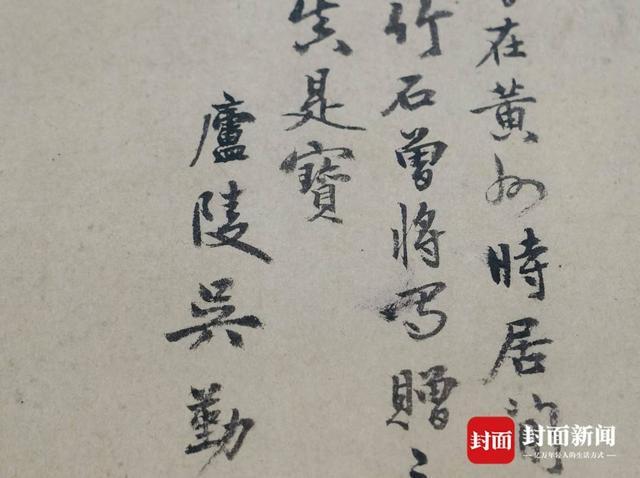 在黄州時居
竹石曾將寫贈
真是寶
廬陵吳勤
封面
封面新闻
亿万年轻人的生活方式